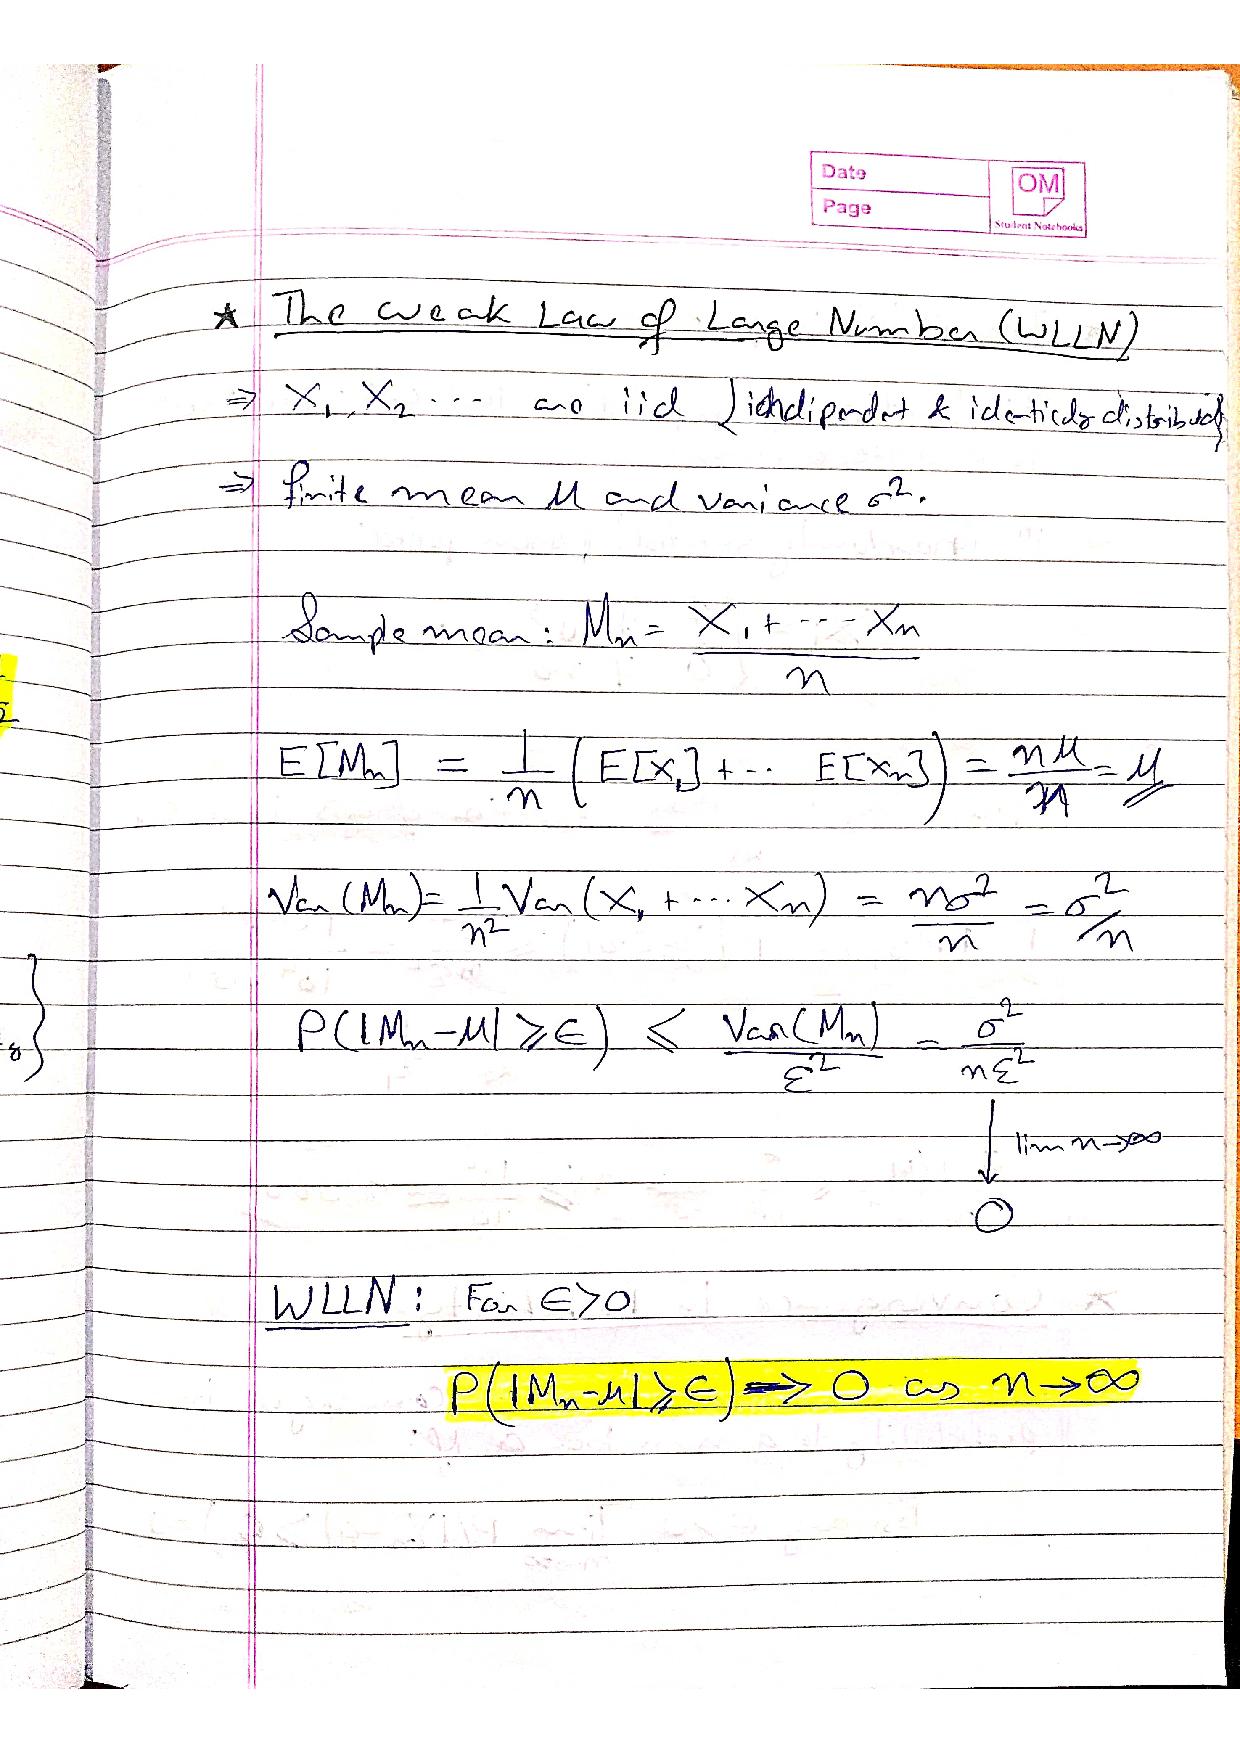 Date
Page
OM
Student Notebooks
★ The Weak Law of Large Number (WLLN)
⇒ X₁, X₂ ... are iid {independent & identically distributed}
⇒ finite mean μ and variance σ².
Sample mean: Mₙ = X₁ + --- Xₙ / n
E[Mₙ] = 1/n (E[X₁] + ... E[Xₙ]) = nμ/n = μ
Var(Mₙ) = 1/n² Var(X₁ + ... Xₙ) = nσ²/n = σ²/n
P(|Mₙ-μ| ≥ ε) ≤ Var(Mₙ)/ε² = σ²/nε²
lim n→∞
0
WLLN: For ε>0
P(|Mₙ-μ| ≥ ε) → 0 as n→∞